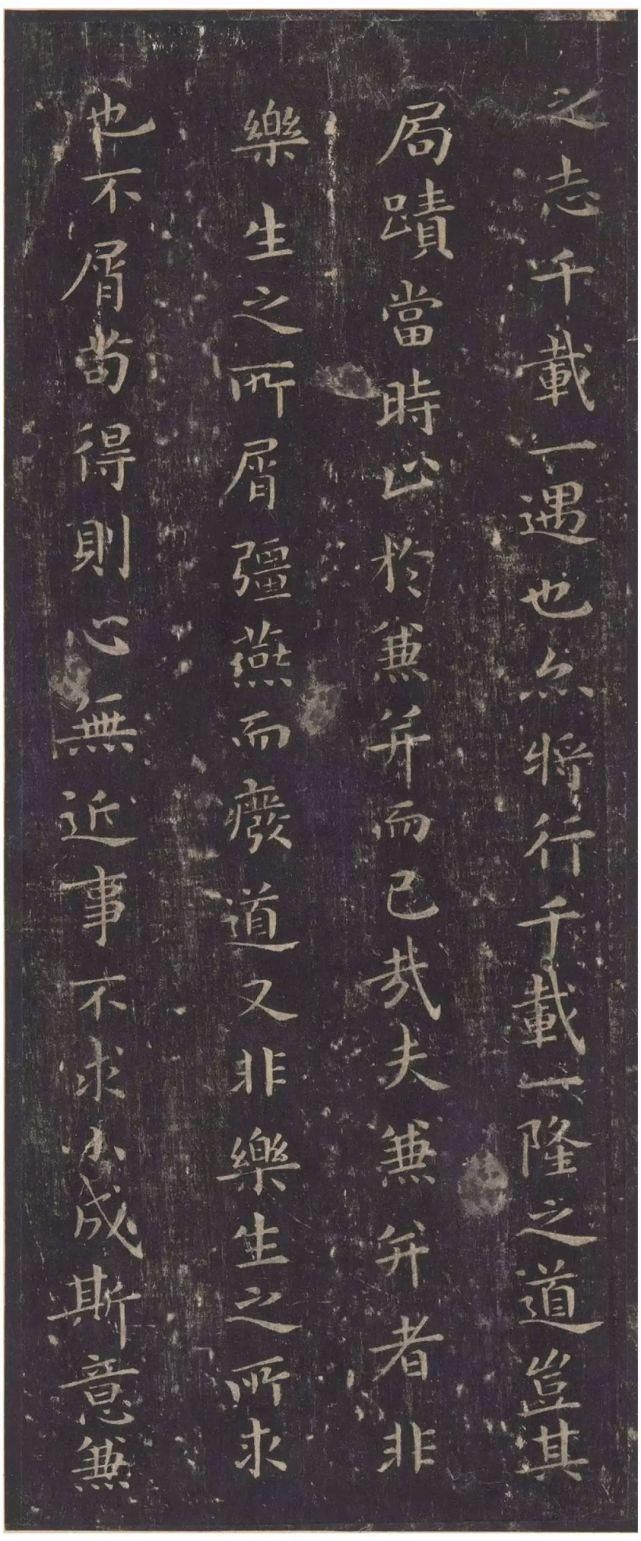 之志千載一遇也亦將行千載一隆之道豈其
局蹟當時止於兼并而已哉夫兼并者非
樂生之所屑彊燕而癈道又非樂生之所求
也不屑苟得則心無近事不求小成斯意兼